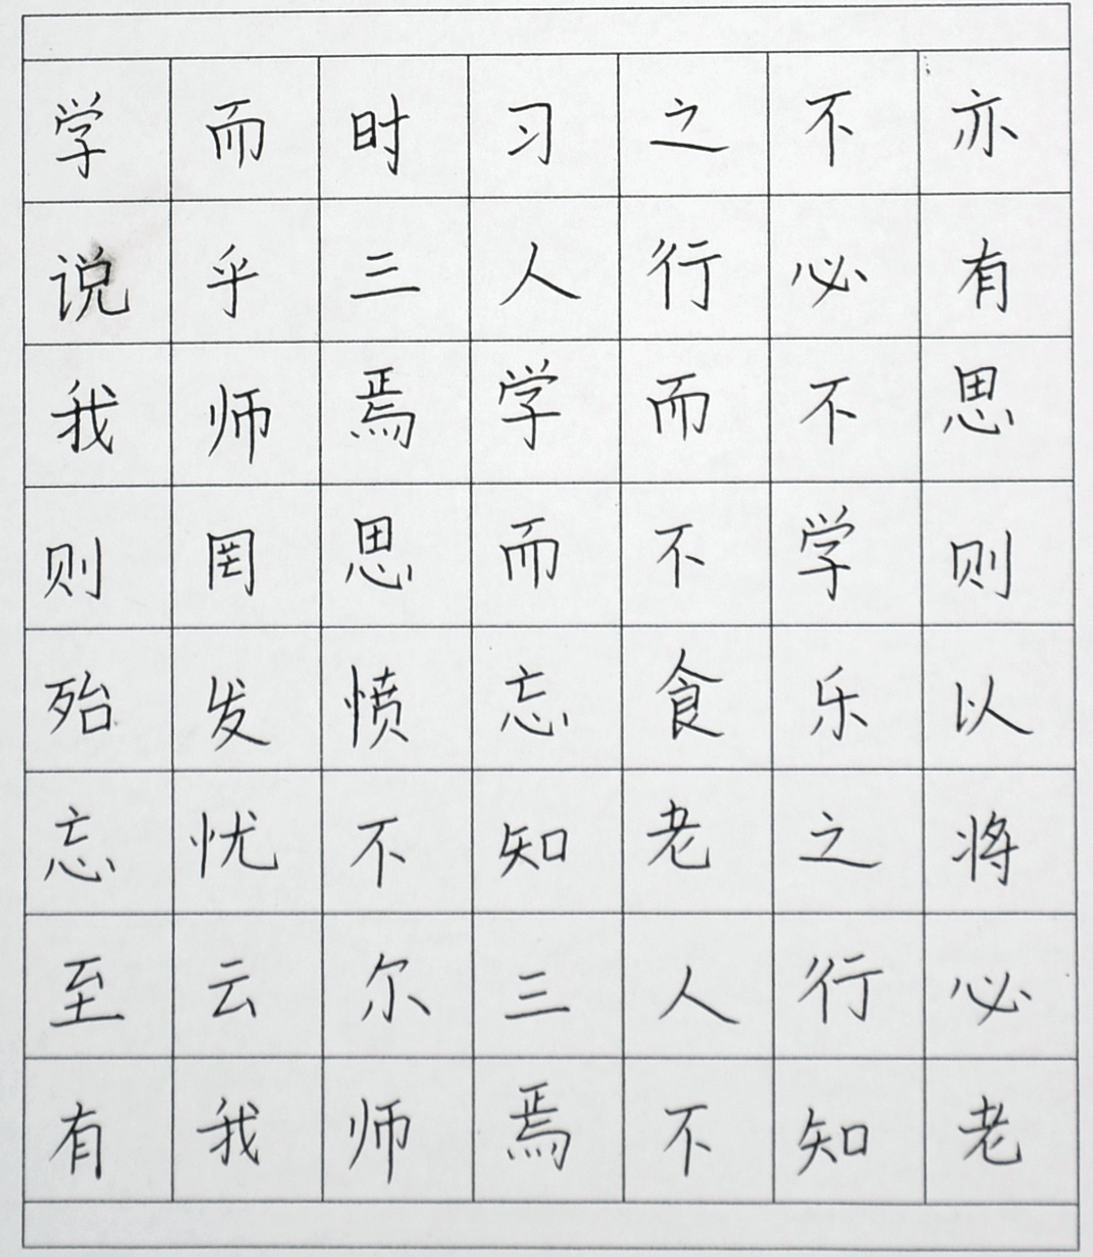 学而时习之不亦
说乎三人行必有
我师焉学而不思
则罔思而不学则
殆发愤忘食乐以
忘忧不知老之将
至云尔三人行必
有我师焉不知老